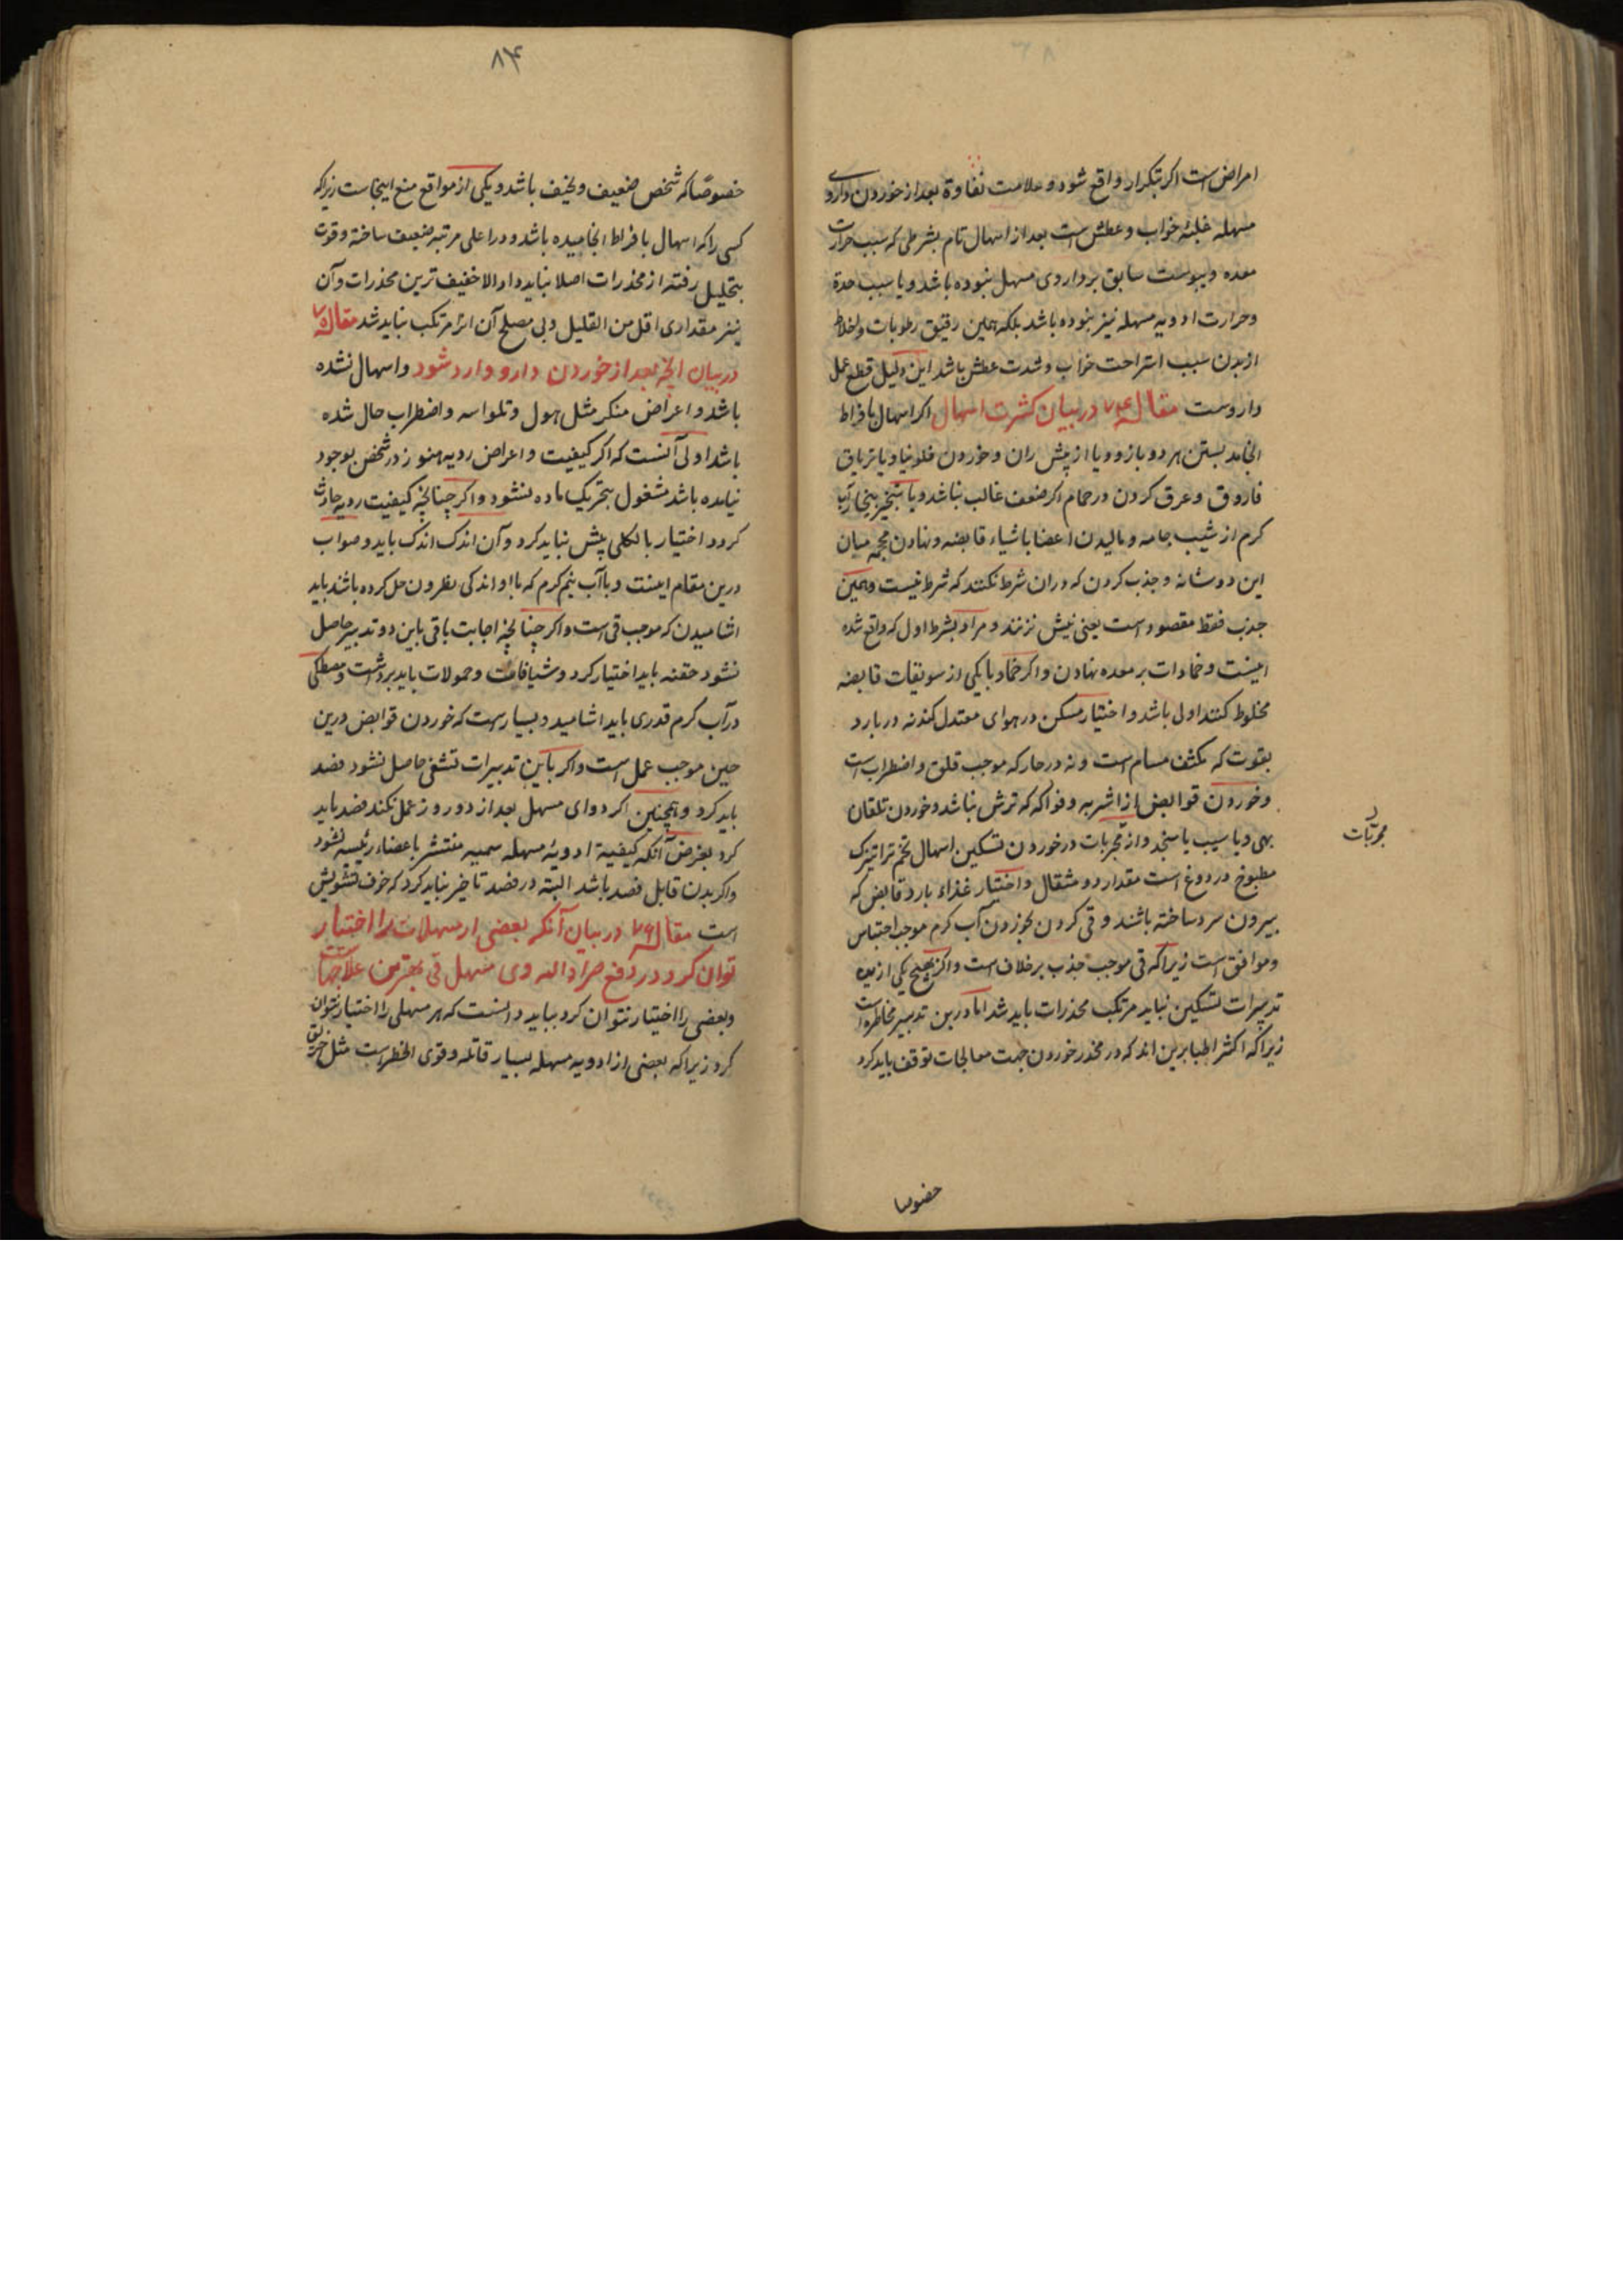 امراض است اکر بتکرار واقع شود و علامت نقاوة بعد از خوردن داروی
مسهله غلبهٔ خواب و عطش است بعد از اسهال تام بشرطی که سبب حرارت
معده و یبوست سابق بر داروی مسهل نبوده باشد و یا سبب حدة
و حرارت ادویه مسهله نیز نبوده باشد بلکه همین رقیق رطوبات و اخلاط
از بدن سبب استراحت خواب و شدت عطش باشد این دلیل قطع عمل
داروست مقاله ۷۴ در بیان کثرت اسهال اکر اسهال بافراط
انجامد بستن هر دو بازو و یا از پیش ران و خوردن فلونیا و یا تریاق
فاروق و عرق کردن در حمام اکر ضعف غالب نباشد و یا بتبخیر بخار آب
کرم از شیب جامه و مالیدن اعضا باشیاء قابضه و نهادن محجمه میان
این دو شانه و جذب کردن که در ان شرط نکنند که شرط نیست و همین
جذب فقط مقصود است یعنی نیش نزنند و مراد بشرط اول که واقع شده
اینست و ضمادات بر معده نهادن و اکر ضماد با یکی از سویقات قابضه
مخلوط کنند اولی باشد و اختیار مسکن در هوای معتدل کند نه در بارد
بقوت که مکثف مسام است و نه در حار که موجب قلق و اضطراب است
و خوردن قوابض از اشربه و فواکه که ترش نباشد و خوردن تلقان
بهی و یا سیب یا سنجد و از مجربات در خوردن تسکین اسهال تخم تراتیزک
مطبوخ در دوغ است مقدار دو مثقال و اختیار غذاء بارد قابض که
بیرون سرد ساخته باشند و قی کردن بخوردن آب کرم موجب احتباس
و موافق است زیرا که قی موجب جذب برخلاف است و اکر بهیچ یکی ازین
تدبیرات تسکین نیابد مرتکب مخدرات باید شد اما درین تدبیر مخاطره است
زیرا که اکثر اطبا برین اند که در مخدر خوردن جهت معالجات توقف باید کرد
مجربات
خصوصا
۸۴
خصوصًا که شخص ضعیف و نحیف باشد و یکی از مواقع منع اینجاست زیرا که
کسی را که اسهال بافراط انجامیده باشد و در اعلی مرتبه ضعیف ساخته و قوت
بتحلیل رفته از مخدرات اصلا نباید داد الا خفیف ترین مخدرات و آن
نیز مقداری اقل من القلیل و بی مصلح آن اثر مرتکب نباید شد مقاله
در بیان انچه بعد از خوردن دارو وارد شود و اسهال نشده
باشد و اعراض منکر مثل هول و تلواسه و اضطراب حال شده
باشد اولی آنست که اکر کیفیت و اعراض ردیه هنوز در شخص بوجود
نیامده باشد مشغول بتحریک ماده نشود و اکر چنانچه کیفیت ردیه حادث
کردد اختیار بالکلی پیش نباید کرد و آن اندک اندک باید و صواب
درین مقام اینست و با آب نیم کرم که با او اندکی نطرون حل کرده باشند باید
اشامیدن که موجب قی است و اکر چنانچه اجابت باقی باین دو تدبیر حاصل
نشود حقنه باید اختیار کرد و شیافات و حمولات باید برداشت و مصطکی
در آب کرم قدری باید اشامید و بسیار هست که خوردن قوابض درین
حین موجب عمل است و اکر باین تدبیرات تشفی حاصل نشود فصد
باید کرد و همچنین اکر دوای مسهل بعد از دو روز عمل نکند فصد باید
کرد بغرض آنکه کیفیة ادویهٔ مسهله سمیه منتشر باعضاء رئیسه نشود
و اکر بدن قابل فصد باشد البته در فصد تاخیر نباید کرد که خوف تشویش
است مقاله ۷۶ در بیان آنکه بعضی از مسهلات را اختیار
توان کرد در دفع مواد و قی بهترین علاجهاست
و بعضی را اختیار نتوان کرد بباید دانست که هر مسهلی را اختیار نتوان
کرد زیرا که بعضی از ادویه مسهله بسیار قاتله و قوی الخطر است مثل خربق